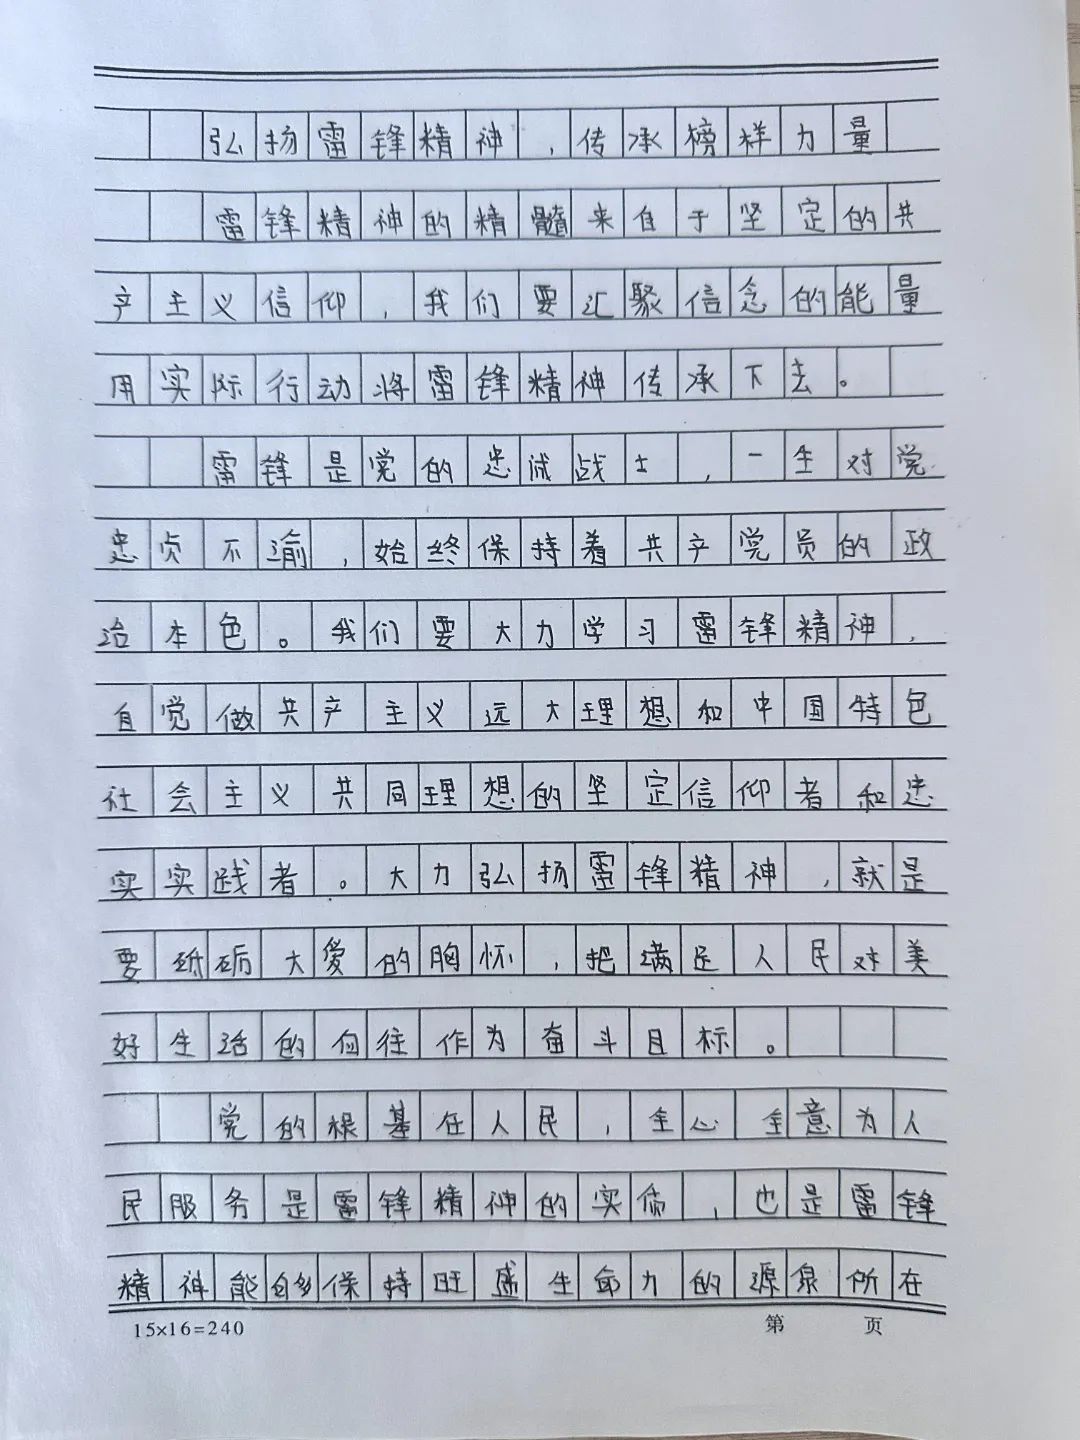 弘扬雷锋精神,传承榜样力量
雷锋精神的精髓来自于坚定的共
产主义信仰,我们要汇聚信念的能量
用实际行动将雷锋精神传承下去。
雷锋是党的忠诚战士,一生对党
忠贞不渝,始终保持着共产党员的政
治本色。我们要大力学习雷锋精神,
自觉做共产主义远大理想和中国特色
社会主义共同理想的坚定信仰者和忠
实实践者。大力弘扬雷锋精神,就是
要砥砺大爱的胸怀,把满足人民对美
好生活的向往作为奋斗目标。
党的根基在人民,全心全意为人
民服务是雷锋精神的实质,也是雷锋
精神能够保持旺盛生命力的源泉所在
15×16=240 第 页